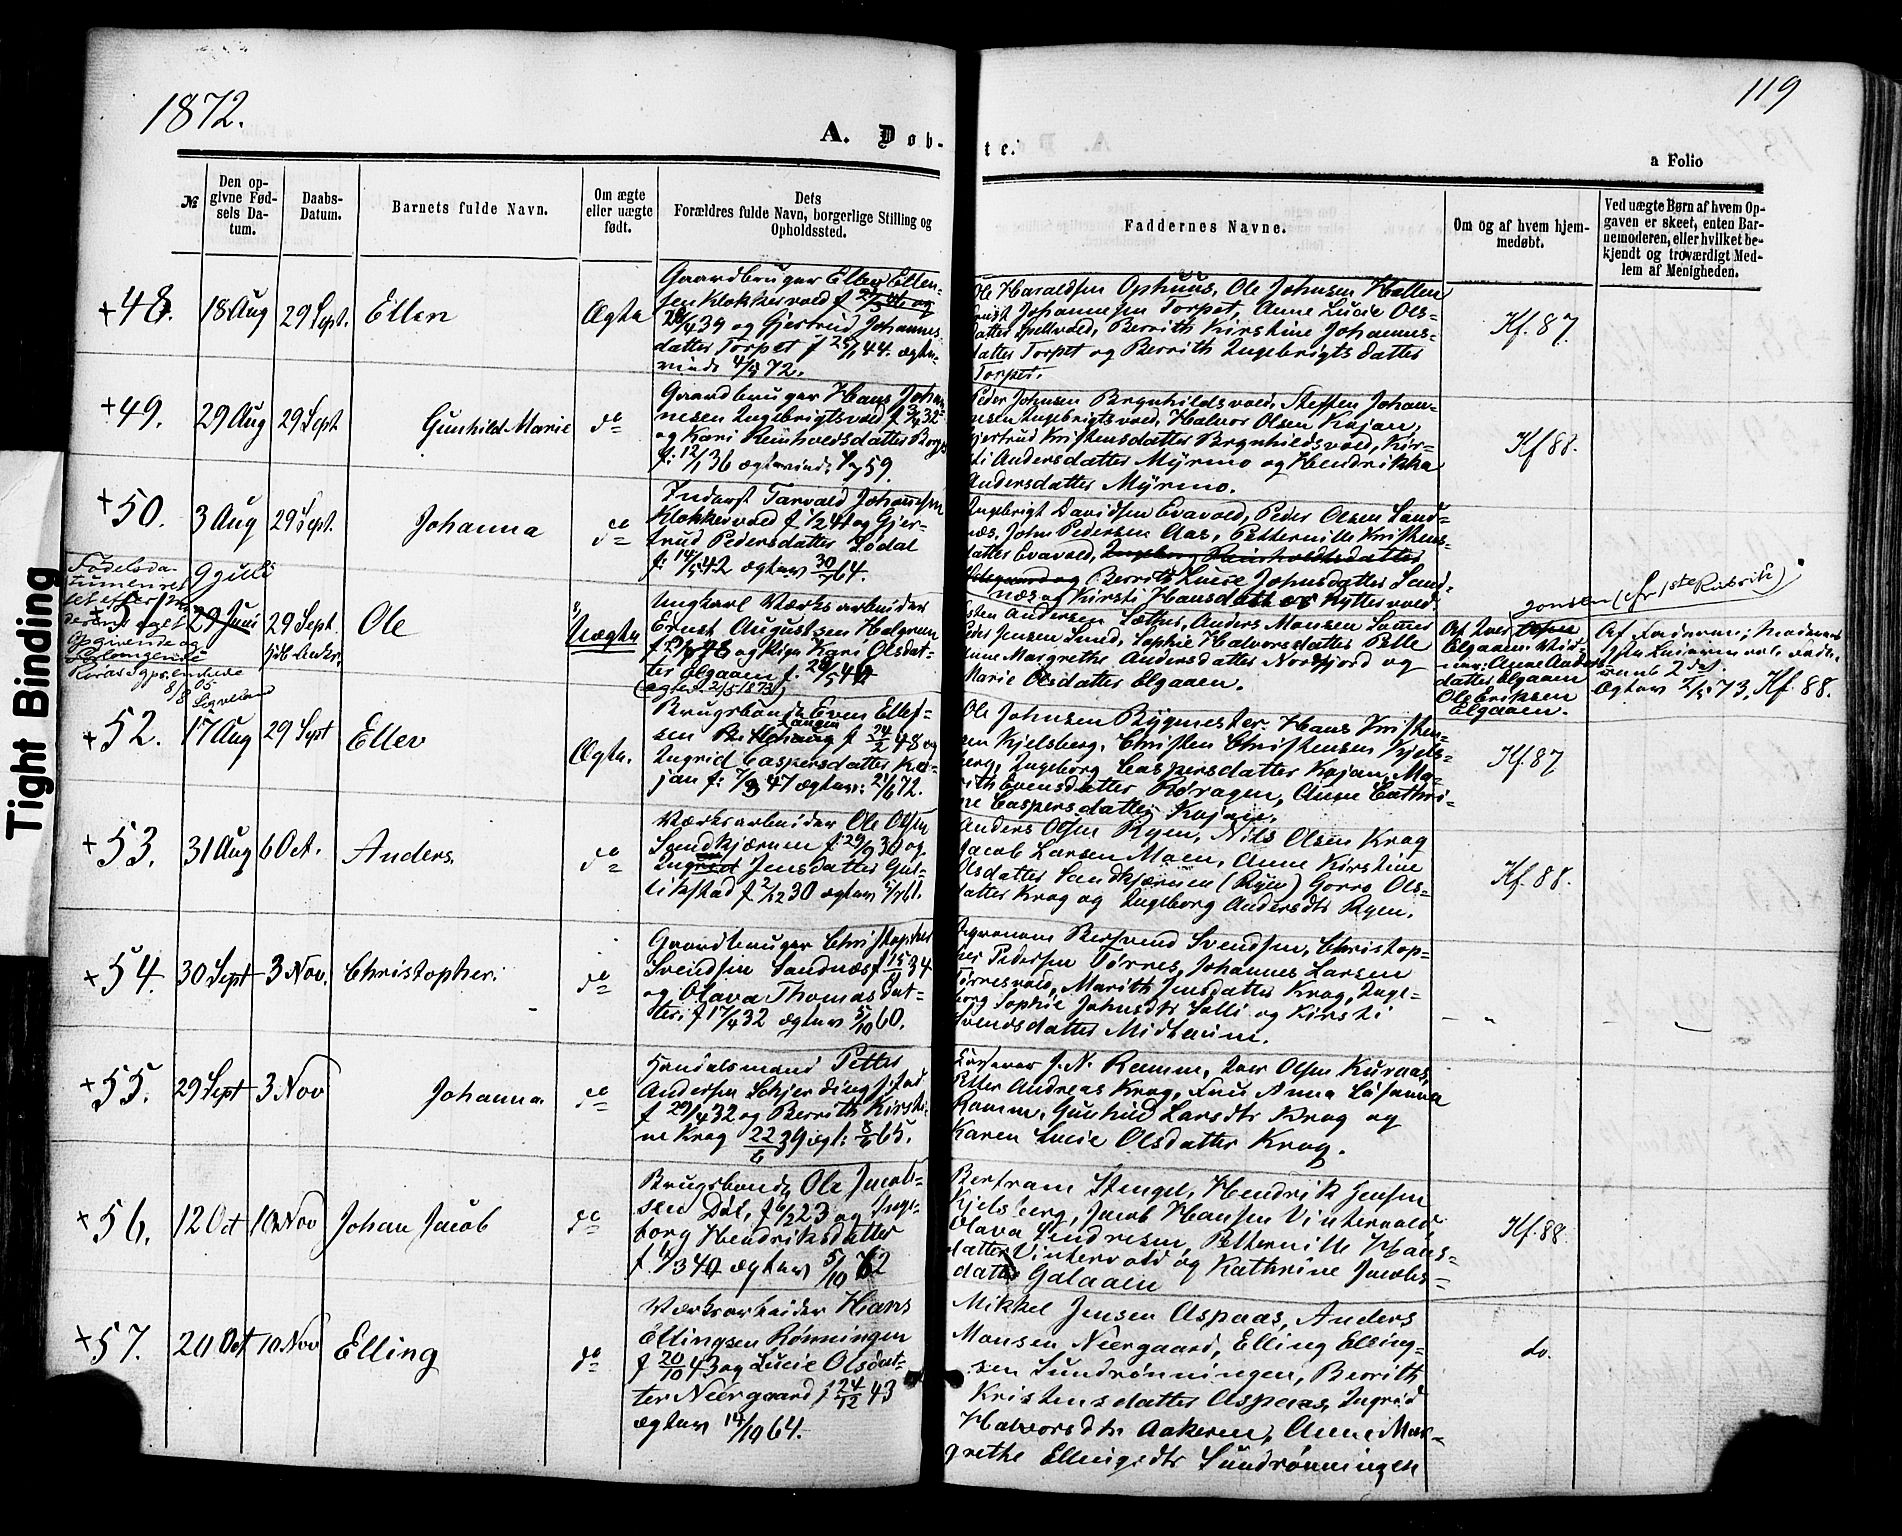 1872.
119
A. Døb-
te.
a Folio
№
Den op-
givne Fød-
sels Da-
tum.
Daabs-
Datum.
Barnets fulde Navn.
Om ægte
eller uægte
født.
Dets
Forældres fulde Navn, borgerlige Stilling og
Opholdssted.
Faddernes Navne.
Om og af hvem hjem-
medøbt.
Ved uægte Børn af hvem Op-
gaven er skeet, enten Bar-
nemoderen, eller hvilket be-
kjendt og troværdigt Med-
lem af Menigheden.
+48. 18 Aug 29 Sept. Ellen Ægte
Gaardbruger Ellev Ellev-
sen Klokkervold
39 og Gjertrud Johannes
datter Torpet f 44. ægte-
viede 72.
Ole Haraldsen Ophuus, Ole Johnsen Hallen
Johannesen Torpet, Anne Lucie Ols-
datter Berrith Kirstine Johannes-
datter Torpet og Berrith Ingebrigtsdatter
Torpet.
Kf. 87.
+49. 29 Aug 29 Sept Gunhild Marie do
Gaardbruger Hans Johan-
nesen Ingebrigtsvold f 32
og Kari Reinholdsdatter Borgos
f. 12/1 36 ægteviede 59.
Peder Johnsen Brynhildsvold, Steffen Johan-
nesen Ingebrigtsvold, Halvor Olsen Kojan,
Gjertrud Kristensdatter Brynhildsvold, Kir-
sti Andersdatter Myrmo og Hendrikka
Andersdatter Myrmo.
Kf 88.
+50. 3 Aug 29 Sept. Johanna do
Inderst Tarvald Johannesen
Klokkervold f 41 og Gjer-
trud Pedersdatter Lødal
f. 14/5 42 ægtev 30/ 64.
Ingebrigt Davidsen Evavold, Peder Olsen Sand-
næs, John Pedersen Aas, Petternille Kristens-
datter Evavold, Ingeborg Reinholdtsdatter
og Berrith Lucie Johnsdatter Sand-
næs og Kirsti Hansdatter Hyttevold.
Fødselsda-
tumen ret-
tet efter Mo-
derens eget
Opgivende og
Røros Sgpr.embede
8/8 05
9 Juli
29 Juni 29 Sept. Ole Uægte
Ungkarl Værksarbeider
Ernst Augustsen Holgren
48 og Pige Kari Olsdat-
ter Elgaaen f. 28/5 46
(Ægtev. 2/5 1873)
Esten Andersen Sæther, Anders Monsen
Peder Jensen Smed, Sophie Halvorsdatter Pelle
Anne Margrethe Andersdatter Nordfjord og
Marie Olsdatter Elgaaen.
Jonsen (cfr 1ste Rubrik)
Af Iver Olsen
Elgaaen. Vid-
ner: Anne Anders-
datter Elgaaen
Ole Eriksen
Elgaaen.
Af Faderen; Moderens
Ægtev 2/5 73. Kf. 88.
+52. 17 Aug 29 Sept Ellev Ægte.
Brugsbonde Even Ellef-
sen f 48 og
Ingrid Caspersdatter Ko-
jan f. 47 ægtev: 2/6 72.
Ole Johnsen Bygmester, Hans Kristen-
sen Kjelsberg, Christen Christensen Kjels-
berg, Ingeborg Caspersdatter Kojan, Ma-
rith Evensdatter Røragen, Anne Cathri-
ne Caspersdatter Kojan.
Kf. 87
+53. 31 Aug 6 Oct. Anders. do
Værksarbeider Ole Olsen
Sandkjærnen f. 30 og
Jensdatter Gul-
likstad f 2/12 30 ægtev 61.
Anders Olsen Ryen, Nils Olsen Krog
Jacob Larsen Moen, Anne Kirstine
Olsdatter Sandkjærnen (Ryen) Gorro Ols-
datter Krog og Ingeborg Andersdtr Ryen.
Kf. 88.
+54. 30 Sept 3 Nov. Christopher. do
Gaardbruger Christopher
Svendsen Sandnæs f 34
og Olava Thomasdat-
ter. f 17/4 32 ægtev 5/10 60.
Bersvend Svendsen, Christop-
her Pedersen Tørres, Johannes Larsen
Tørresvold, Marith Jensdatter Krog, Inge-
borg Sophie Johnsdtr Solli og Kirsti
Svendsdatter Midthuun.
+55. 29 Sept 3 Nov Johanna. do
Handelsmand Petter
Andersen Schjerdingstad
f 29/4 32 og Berrith Kirsti-
ne Krog 22/6 39 ægt: 8/6 65.
J. N. Ramm, Iver Olsen Kuraas,
Petter Andreas Krog, Fru Anna Susanna
Ramm, Gunhild Larsdtr Krog og
Karen Lucie Olsdatter Krog.
+56. 12 Oct 10 Nov Johan Jacob do
Brugsbonde Ole Jacob-
sen Døl, f 23 og Inge-
borg Hendriksdatter
f. 40 ægtev 5/10 62
Bertram Stengel, Hendrik Jensen
Kjelsberg, Jacob Hansen Vintervold
Olava Hendresen, Petternille Hans-
datter Vintervold og Kathrine Jacobs-
datter Galaaen
Kf. 88.
+57. 20 Oct 10 Nov Elling do
Værksarbeider Hans
Ellingsen Rønningen
f 20/10 43 og Lucie Olsdat-
ter Neergaard f 24/12 43
ægtev 14/10 64.
Mikkel Jensen Aspaas, Anders
Monsen Neergaard, Elling Elling-
sen Sundrønningen, Berrith
Kristensdatter Aspaas, Ingrid
Halvorsdtr Aakeren, Anne Mar-
grethe Ellingsdtr Sundrønningen
do.
Tight Binding